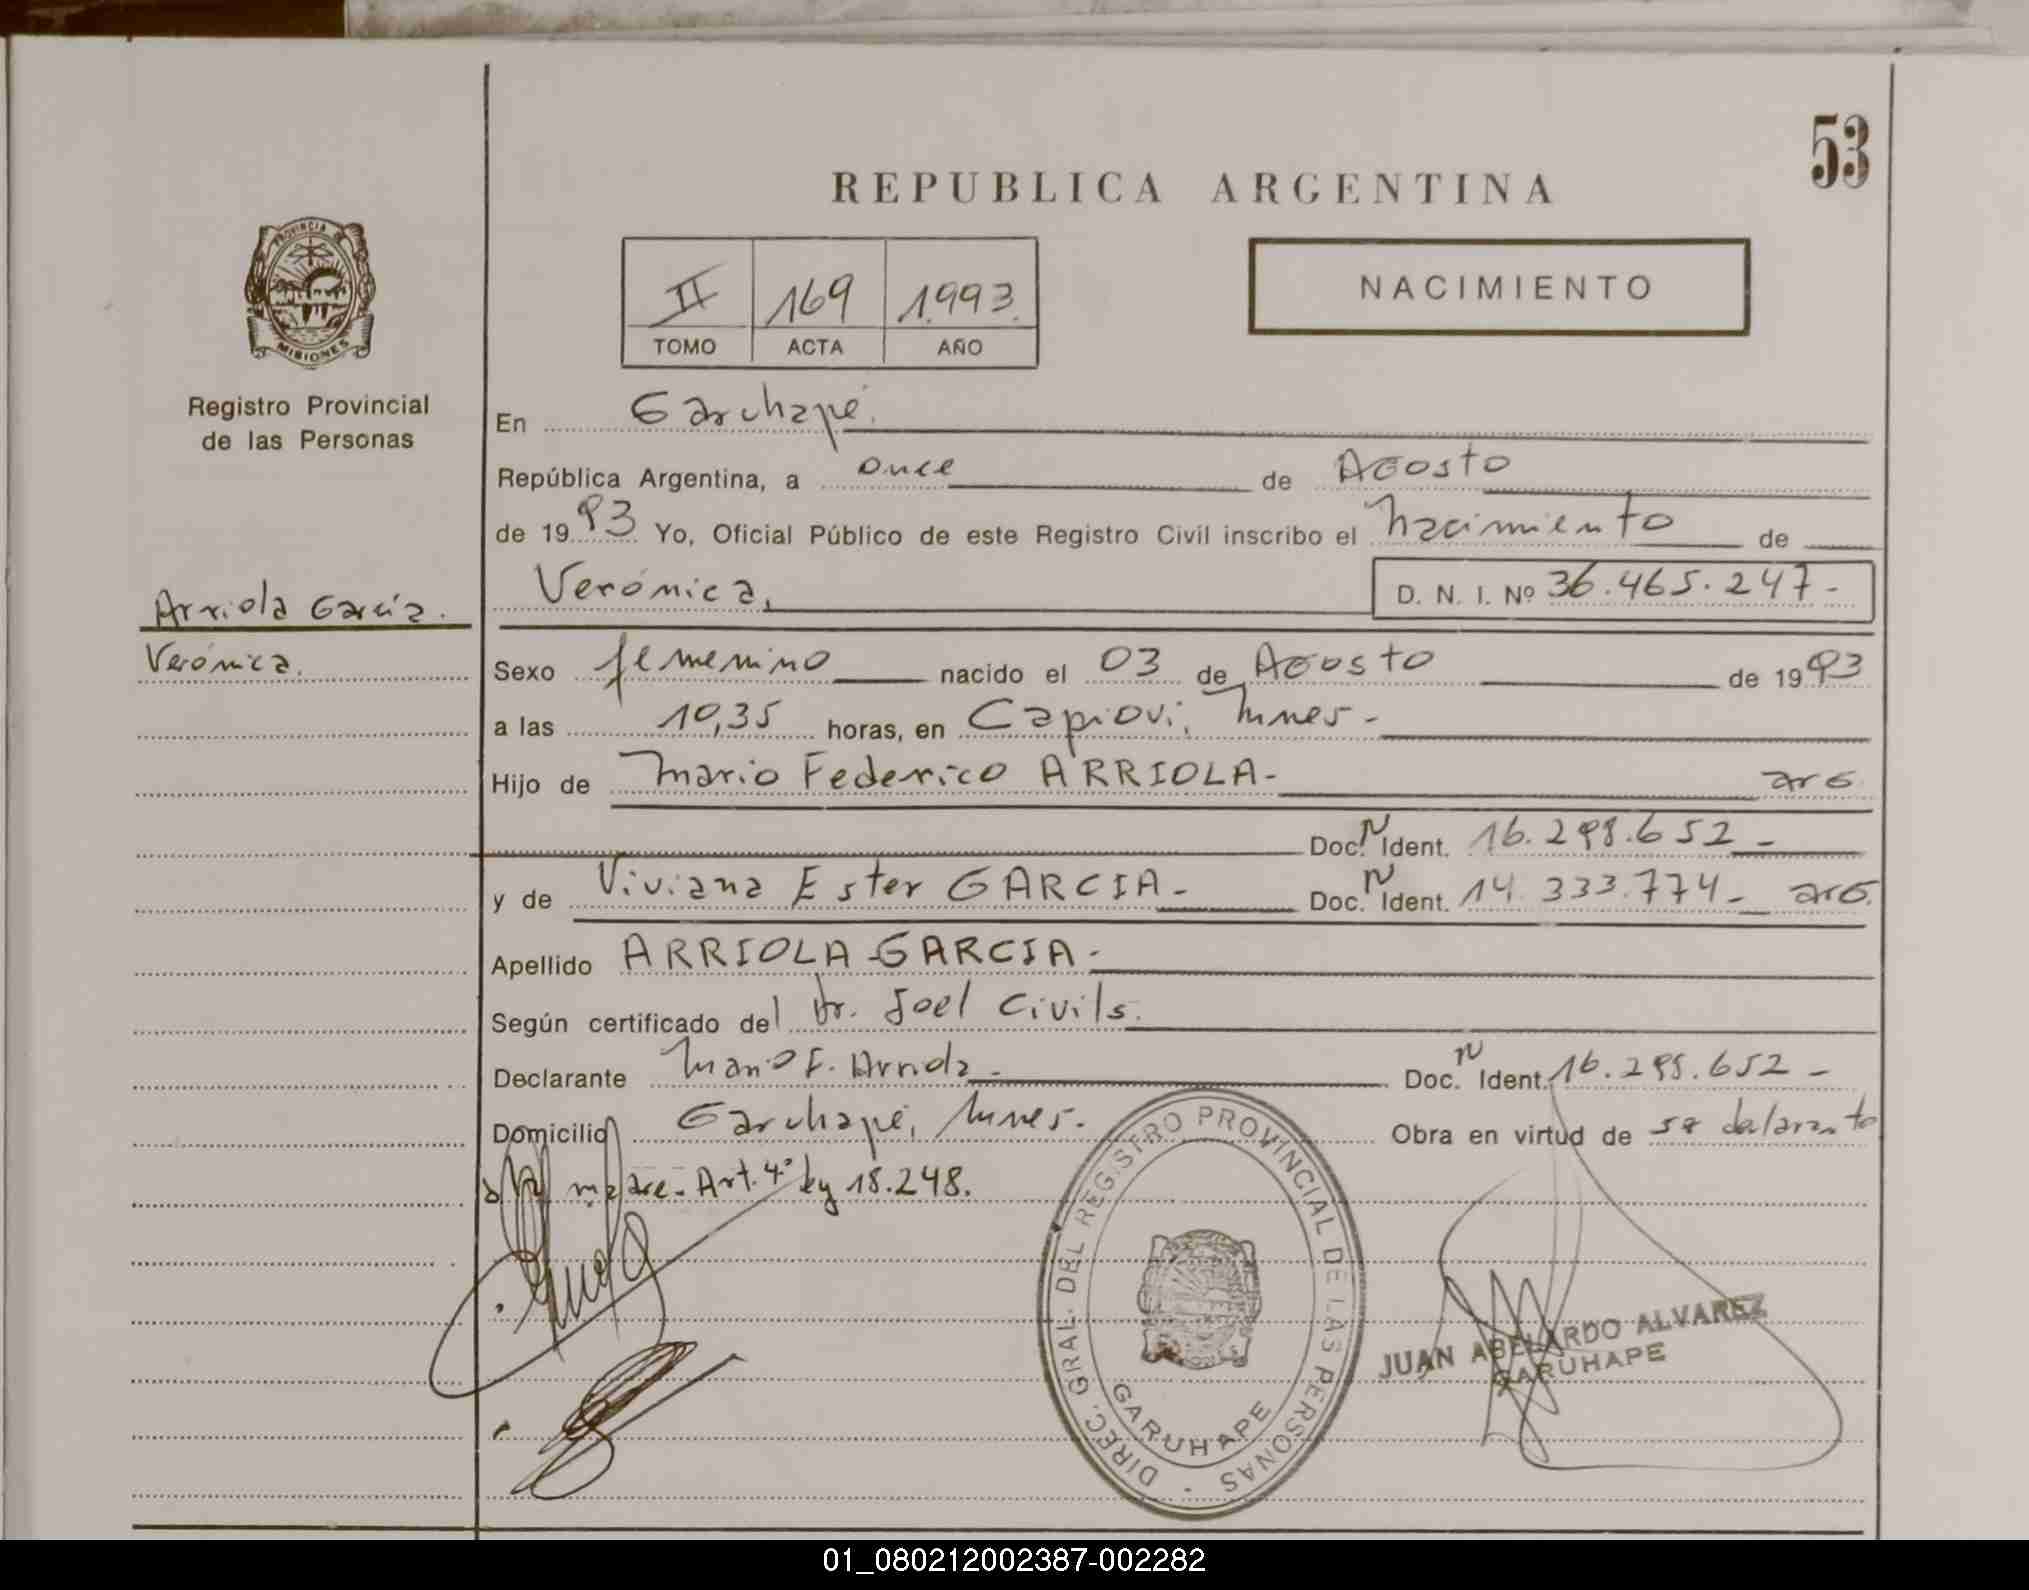 53
REPUBLICA ARGENTINA
PROVINCIA DE
MISIONES
II 169 1.993.
TOMO ACTA AÑO
NACIMIENTO
Registro Provincial
de las Personas
En Garuhapé.
República Argentina, a once de Agosto
de 1993 Yo, Oficial Público de este Registro Civil inscribo el nacimiento de
Arriola García.
Verónica, D. N. I. Nº 36.465.247-
Verónica.
Sexo femenino nacido el 03 de Agosto de 1993
a las 10,35 horas, en Capioví, Mnes-
Hijo de Mario Federico ARRIOLA- arg.
Doc. N Ident. 16.298.652-
y de Viviana Ester GARCIA- Doc. N Ident. 14.333.774- arg.
Apellido ARRIOLA GARCIA-
Según certificado del Dr. Joel Civils.
Declarante Mario F. Arriola- Doc. N Ident. 16.298.652-
Domicilio Garuhapé, Mnes. Obra en virtud de ser declarante
madre. Art. 4º ley 18.248.
DIREC. GRAL. DEL REGISTRO PROVINCIAL DE LAS PERSONAS
GARUHAPE
JUAN ABELARDO ALVAREZ
GARUHAPE
01_080212002387-002282